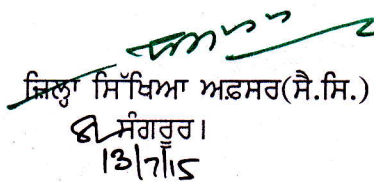 ਜ਼ਿਲ੍ਹਾ ਸਿੱਖਿਆ ਅਫ਼ਸਰ(ਸੈ.ਸਿ.)
ਸੰਗਰੂਰ।
13/7/15